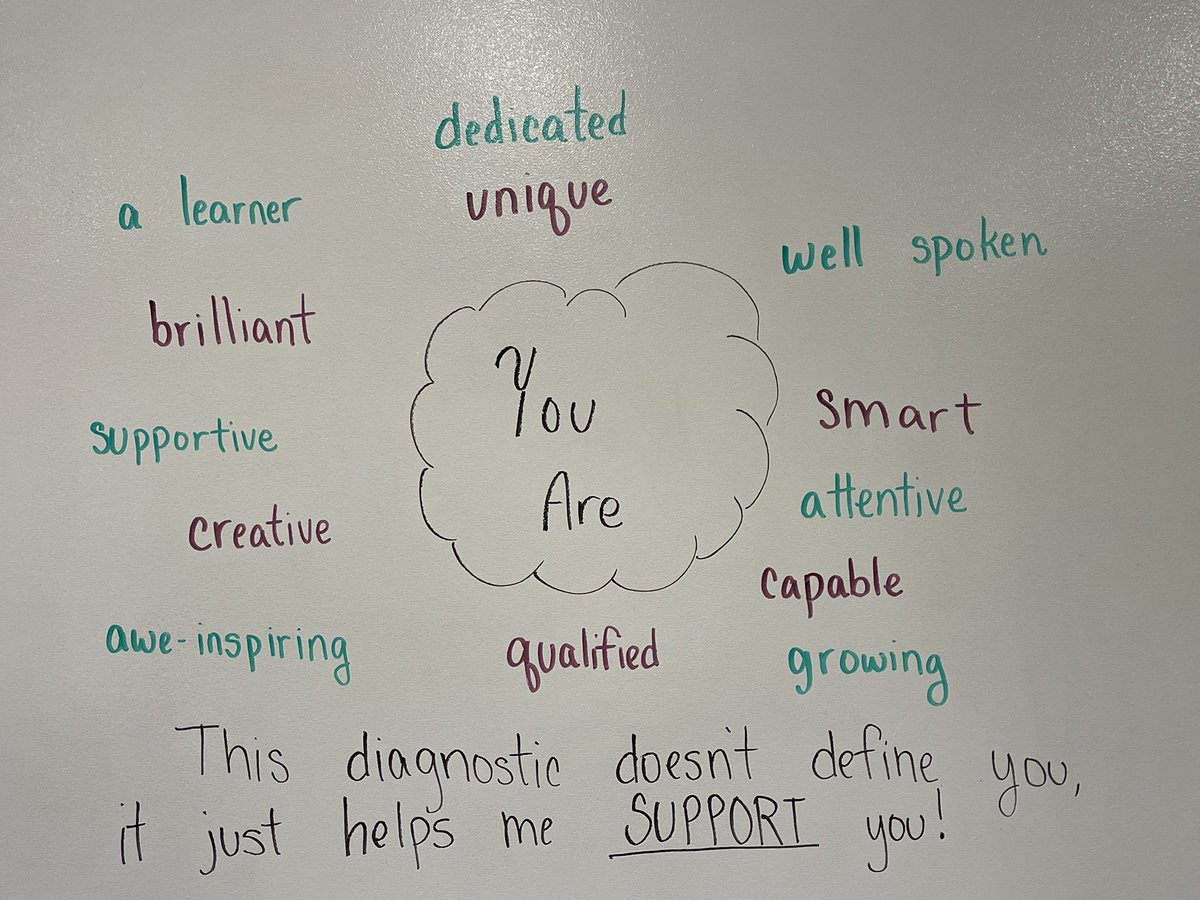 dedicated
unique
a learner
well spoken
brilliant
You
Are
smart
supportive
attentive
creative
capable
awe-inspiring
qualified
growing
This diagnostic doesn't define you,
it just helps me SUPPORT you!